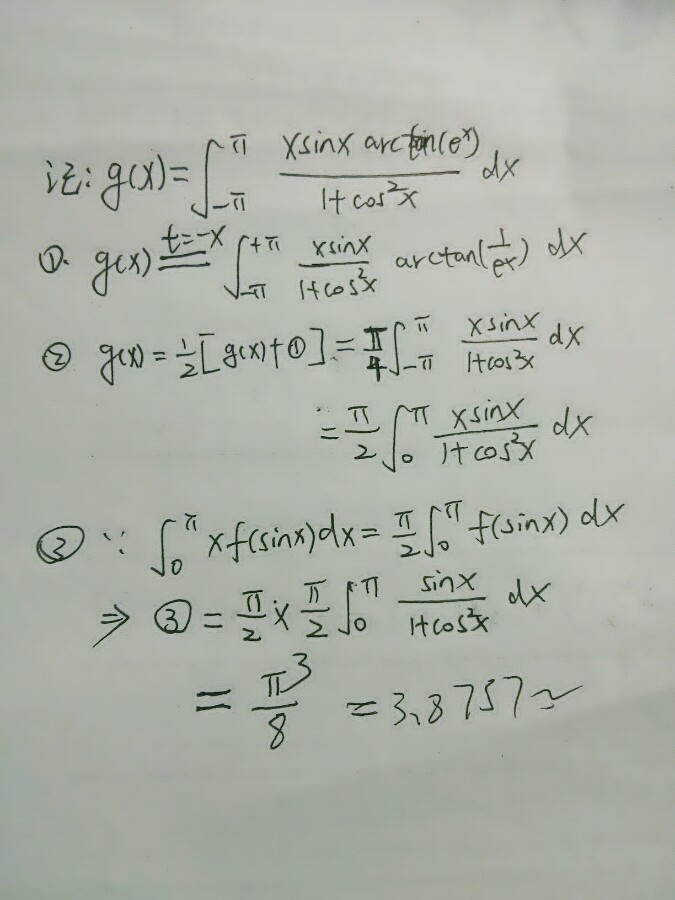 记: g(x)=∫_{-π}^{π} \frac{x sinx arctan(e^x)}{1+cos²x} dx
①. g(x) \overset{t=-x}{=} ∫_{-π}^{+π} \frac{x sinx}{1+cos²x} arctan(\frac{1}{e^x}) dx
② g(x)=\frac{1}{2}[g(x)+①]=\frac{π}{4}∫_{-π}^{π} \frac{x sinx}{1+cos²x} dx
=\frac{π}{2}∫_{0}^{π} \frac{x sinx}{1+cos²x} dx
③ ∵ ∫_{0}^{π} x f(sinx) dx=\frac{π}{2}∫_{0}^{π} f(sinx) dx
⇒ ③=\frac{π}{2}×\frac{π}{2}∫_{0}^{π} \frac{sinx}{1+cos²x} dx
=\frac{π³}{8} =3.8757~